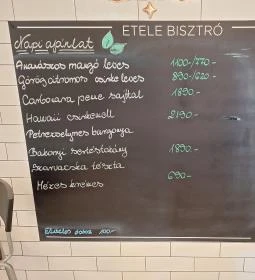 ETELE BISZTRÓ
Napi ajánlat
Ananászos mangó leves 1100-/770-
Görög citromos csirke leves 890-/620-
Carbonara penne sajttal 1890-
Hawaii csirkemell 2190-
Petrezselymes burgonya
Bakonyi sertéstokány 1890-
Szarvacska tészta
Mézes krémes 690-
Elviteles doboz 100-